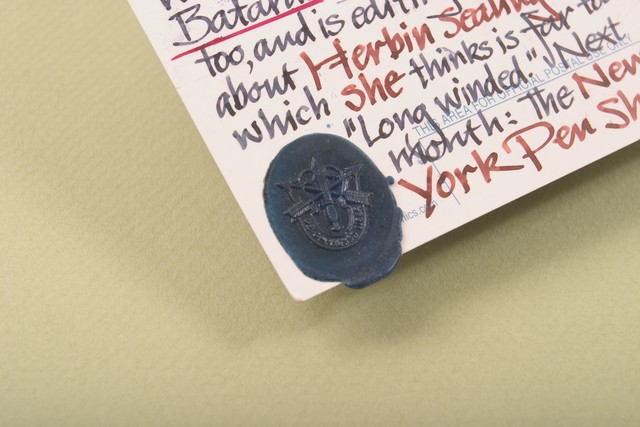 Batar
too, and is editin
about Herbin Sealing
which she thinks is far too
"Long winded." Next
THIS AREA FOR OFFICIAL POSTAL USE ONLY
month: The New
York Pen Sh
ics.com